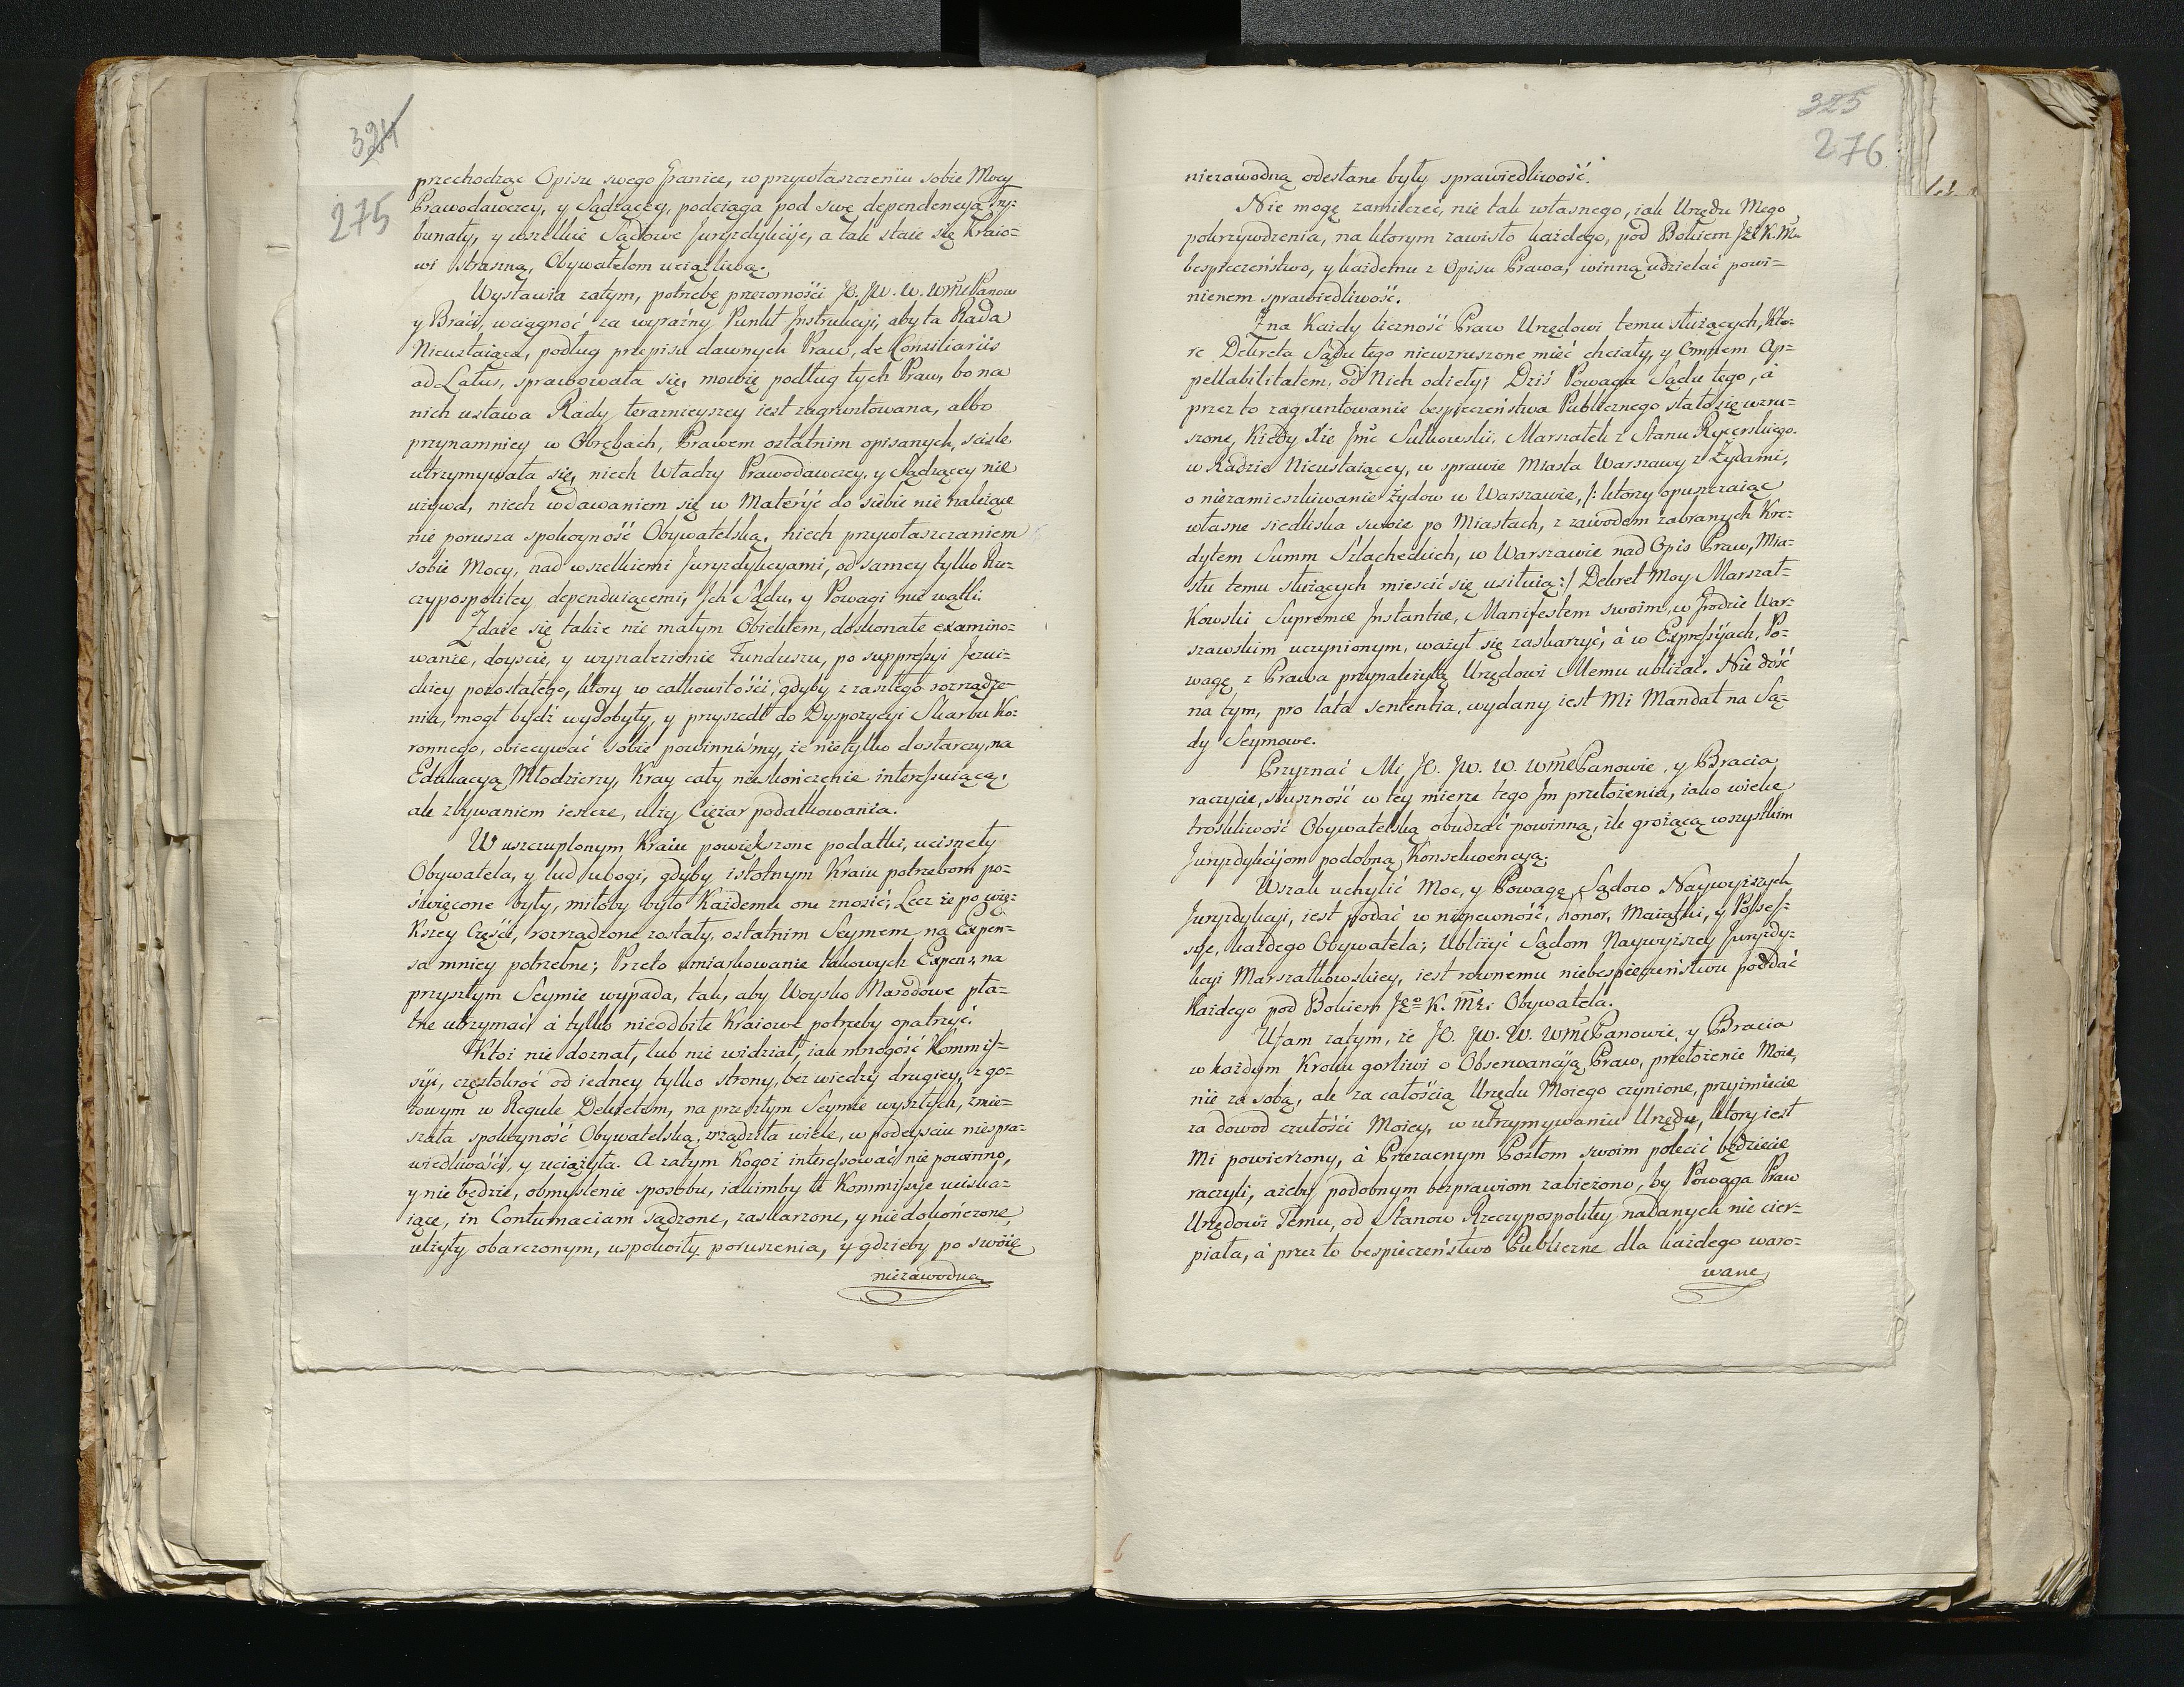 324
275
przechodząc Opisu swego Granice, w przywłaszczeniu sobie Mocy
Prawodawczey, y Sądzącey, podciąga pod swę dependencyą Try=
bunały, y wszelkie Sądowe Juryzdykcye, a tak staie się Kraio=
wi straszną, Obywatelom uciążliwą.
Wystawia zatym, potrzebę przezorności JO. JW. W. WMć Panow
y Braci, wciągnąć za wyraźny Punkt Instrukcyi, aby ta Rada
Nieustaiąca, podług przepisu dawnych Praw, de Consiliariis
ad Latus, sprawowała się, mowię podług tych Praw, bo na
nich ustawa Rady teraznieyszey iest zagruntowana, albo
przynamniey w Obrębach, Prawem ostatnim opisanych, scisle
utrzymywała się, niech Władzy Prawodawczey, y Sądzącey nie
używa, niech wdawaniem się w Materye do siebie nie należące
nie porusza spokoyność Obywatelską, niech przywłaszczaniem
sobie Mocy, nad wszelkiemi Juryzdykcyami, od samey tylko Rze=
czypospolitey dependuiącemi, Ich Sądu, y Powagi nie wątli.
Zdaie się także nie małym Obiektem, doskonałe examino=
wanie, doyscie, y wynalezienie Funduszu, po suppressyi Jezui=
ckiey pozostałego, ktory w całkowitości, gdyby z zaszłego rozrządze=
nia, mogł bydź wydobyty, y przyszedł do Dyspozycyi Skarbu Ko=
ronnego, obiecywać sobie powinniśmy, że nie tylko dostarczy, na
Edukacyą Młodzieży, Kray cały nieskończenie interessuiącą,
ale zbywaniem ieszcze, ulży Ciężar podatkowania.
W uszczuplonym Kraiu powiększone podatki, ucisnęły
Obywatela, y lud ubogi, gdyby istotnym Kraiu potrzebom po=
święcone były, miłoby było Każdemu one znosić; Lecz że po wię=
kszey Części, rozrządzone zostały, ostatnim Seymem na Expen=
sa mniey potrzebne; Przeto umiarkowanie takowych Expens, na
przyszłym Seymie wypada, tak, aby Woysko Narodowe pła=
tne utrzymać, a tylko nieodbite Kraiowe potrzeby opatrzyć.
Ktoż nie doznał, lub nie widział, iak mnogość Kommis=
syi, częstokroć od iedney tylko strony, bez wiedzy drugiey, z go=
towym w Regule Dekretem, na przeszłym Seymie wyszłych, zmie=
szała spokoyność Obywatelską, zrządziła wiele, w podeysciu niespra=
wiedliwości, y uciążyła. A zatym Kogoż interessować nie powinno,
y nie będzie, obmyslenie sposobu, iakimby te Kommissye uciska=
iące, in Contumaciam sądzone, zaskarzone, y niedokończone,
ulżyły obarczonym, uspokoiły poruszenia, y gdzieby po swoię
niezawodną
325
276
niezawodną odesłane były sprawiedliwość.
Nie mogę zamilczeć, nie tak własnego, iak Urzędu Mego
pokrzywdzenia, na ktorym zawisło każdego, pod Bokiem JEo K. Mci
bespieczeństwo, y każdemu z Opisu Prawa, winną udzielać powi=
nienem sprawiedliwość.
Zna Każdy liczność Praw Urzędowi temu służących, kto=
re Dekreta Sądu tego niewzruszone mieć chciały, y Omnem Ap=
pellabilitatem, od Nich odięły; Dziś Powaga Sądu tego, a
przez to zagruntowanie bespieczeństwa Publicznego stało się wzru=
szone, Kiedy Xże Jmć Sułkowski, Marszałek z Stanu Rycerskiego
w Radzie Nieustaiącey, w sprawie Miasta Warszawy z Żydami,
o niezamieszkiwanie Żydow w Warszawie, /: ktorzy opuszczaiąc
własne siedliska swoie po Miastach, z zawodem zabranych Kre=
dytem Summ Szlacheckich, w Warszawie nad Opis Praw, Mia=
stu temu służących mieścić się usiłuią :/ Dekret Moy Marszał=
kowski Supremæ Instantiæ, Manifestem swoim, w Grodzie War=
szawskim uczynionym, ważył się zaskarżyć, a w Expressyach, Po=
wagę z Prawa przynależytą Urzędowi Memu ubliżać. Nie dość
na tym, pro lata sententia, wydany iest Mi Mandat na Są=
dy Seymowe.
Przyznać Mi JO. JW. W. WMć Panowie, y Bracia
raczycie, słuszność w tey mierze tego Im przełożenia, iako wielce
troskliwość Obywatelską obudzać powinną, ile grożącą wszystkim
Juryzdykcyom podobną Konsekwencyą.
Wszak uchylić Moc, y Powagę Sądow Naywyższych
Juryzdykcyi, iest podać w niepewność, honor, Maiątki, y Posses=
sye, każdego Obywatela; Ubliżyć Sądom Naywyższey Juryzdy=
kcyi Marszałkowskiey, iest rownemu niebespieczeństwu poddać
Każdego pod Bokiem JEo K. Mci Obywatela.
Ufam zatym, że JO. JW. W. WMć Panowie, y Bracia
w każdym Kroku gorliwi o Obserwancyą Praw, przełożenie Moie,
nie za sobą, ale za całością Urzędu Moiego czynione, przyimiecie
za dowod czułości Moiey, w utrzymywaniu Urzędu, ktory iest
Mi powierzony, a Przezacnym Posłom swoim polecić będziecie
raczyli, ażeby podobnym bezprawiom zabieżono, by Powaga Praw
Urzędowi Temu, od Stanow Rzeczypospolitey nadanych nie cier=
piała, a przez to bespieczeństwo Publiczne dla każdego waro=
wane
6